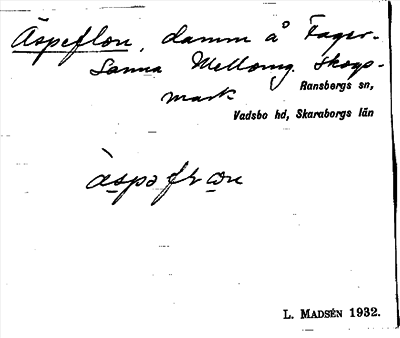 Äspeflon, damm å Fager-
sanna Mellomg. skogs-
mark
Ransbergs sn,
Vadsbo hd, Skaraborgs län
L. MADSÉN 1932.